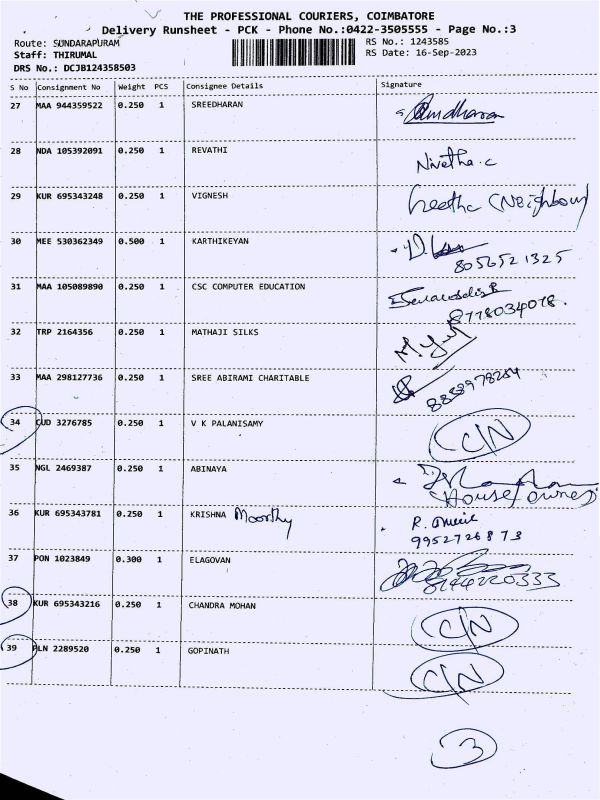 THE PROFESSIONAL COURIERS, COIMBATORE
Delivery Runsheet - PCK - Phone No.:0422-3505555 - Page No.:3
Route: SUNDARAPURAM RS No.: 1243585
Staff: THIRUMAL RS Date: 16-Sep-2023
DRS No.: DCJB124358503
S No Consignment No Weight PCS Consignee Details Signature
27 MAA 944359522 0.250 1 SREEDHARAN
28 NDA 105392091 0.250 1 REVATHI Nivetha.c
29 KUR 695343248 0.250 1 VIGNESH Geetha (Neighbour)
30 MEE 530362349 0.500 1 KARTHIKEYAN
8056521325
31 MAA 105089890 0.250 1 CSC COMPUTER EDUCATION
8778034078.
32 TRP 2164356 0.250 1 MATHAJI SILKS
33 MAA 298127736 0.250 1 SREE ABIRAMI CHARITABLE
34 CUD 3276785 0.250 1 V K PALANISAMY C/N
35 NGL 2469387 0.250 1 ABINAYA
(House owner)
36 KUR 695343781 0.250 1 KRISHNA Moorthy
9952726873
37 PON 1023849 0.300 1 ELAGOVAN
38 KUR 695343216 0.250 1 CHANDRA MOHAN C/N
39 PLN 2289520 0.250 1 GOPINATH C/N
3